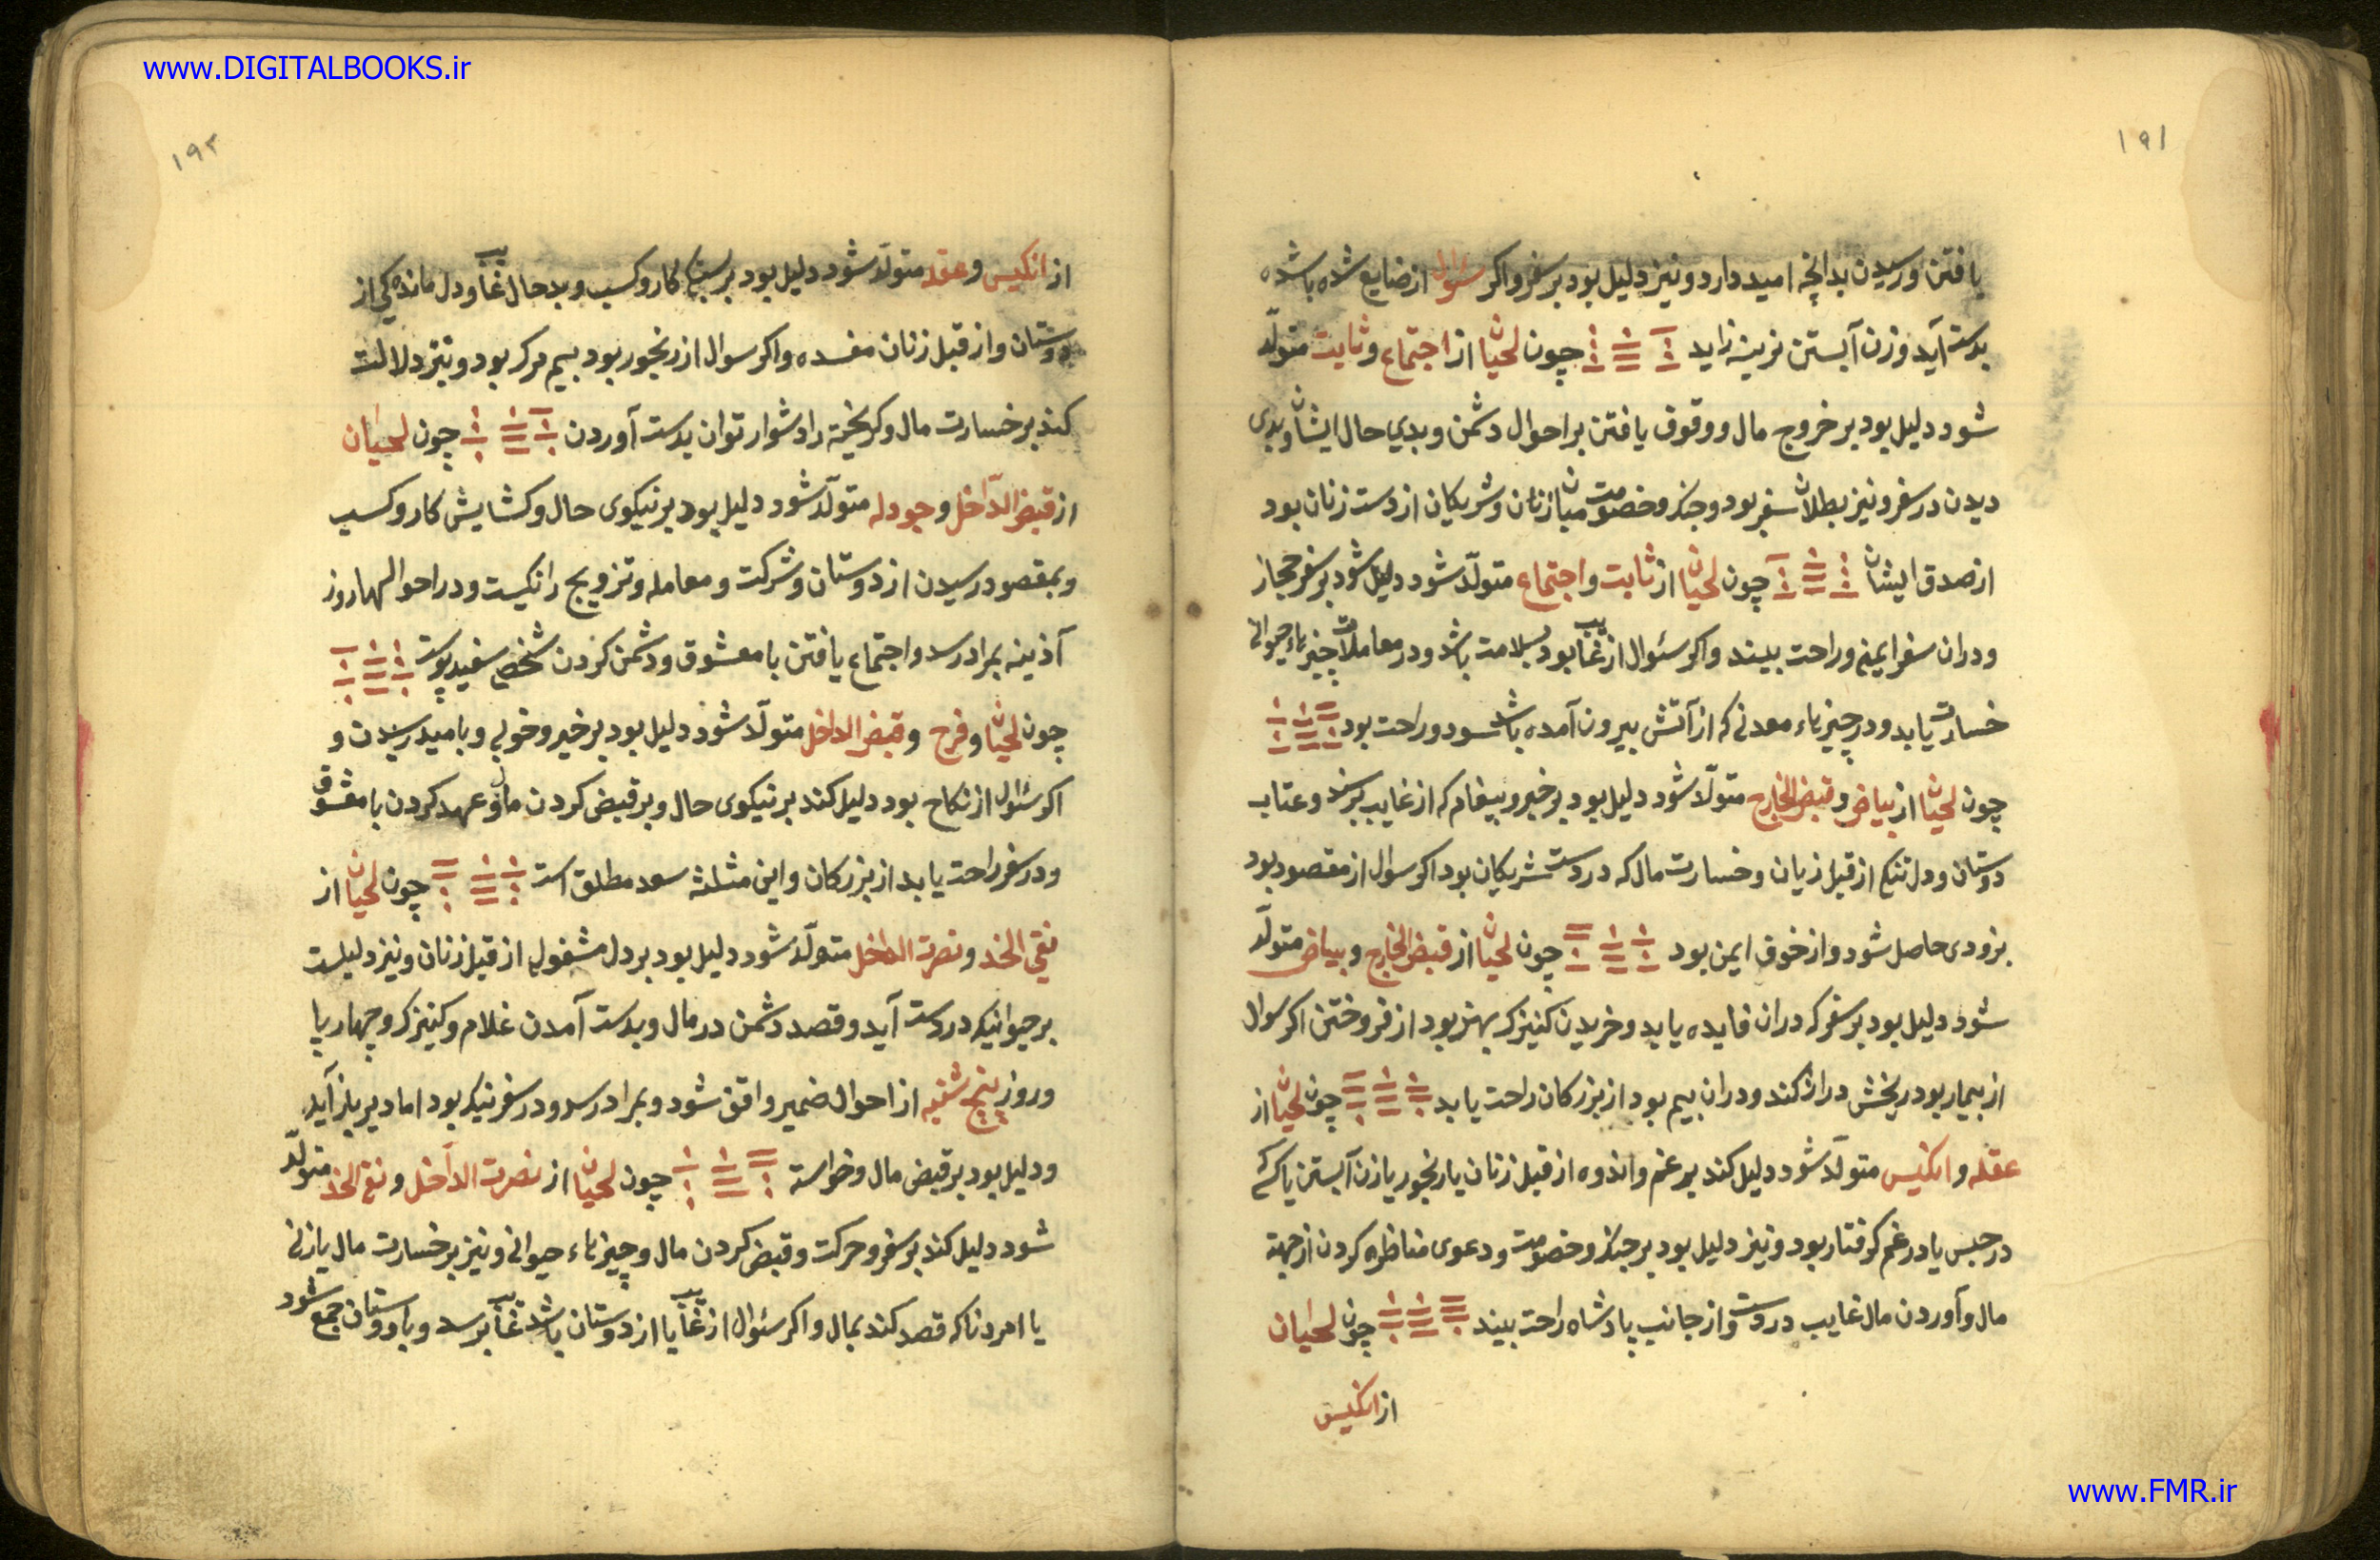 www.DIGITALBOOKS.ir
۱۹۱
یافتن و رسیدن بدانچه امید دارد و نیز دلیل بود بر سفر و اکر سوال از ضایع شده باشد
بدست آید و زن آبستن نرینه زاید چون لحیان از اجتماع و ثابت متولّد
شود دلیل بود بر خروج مال و وقوف یافتن بر احوال دشمن و بدی حال ایشان و بدی
دیدن در سفر و نیز بطلان سفر بود و جنک و خصومت میان زنان و شریکان از دست زنان بود
از صدق ایشان چون لحیان از ثابت و اجتماع متولّد شود دلیل شود بر سفر حجاز
و دران سفر ایمنی و راحت بیند و اکر سئوال از غایب بود بسلامت باشد و در معاملات چیزهاء حیوانی
خسارت یابد و در چیزهاء معدنی که از آتش بیرون آمده باشد سود و راحت بود
چون لحیان از بیاض و قبض الخارج متولّد شود دلیل بود بر خبر و پیغام که از غایب برسد و عتاب
دوستان و دل تنکی از قبل زیان و خسارت مال که در دست شریکان بود اکر سوال از مقصود بود
بزودی حاصل شود و از خوف ایمن بود چون لحیان از قبض الخارج و بیاض متولّد
شود دلیل بود بر سفر که دران فایده یابد و خریدن کنیزک بهتر بود از فروختن اکر سوال
از بیمار بود رنجش دراز کند و دران بیم بود از بزرکان راحت یابد چون لحیان از
عقله و انکیس متولّد شود دلیل کند بر غم و اندوه از قبل زنان یا رنجور یا زن آبستن یا کسی
در حبس یا در غم کرفتار بود و نیز دلیل بود بر جنک و خصومت و دعوی مناظره کردن از جهة
مال و آوردن مال غایب در دست و از جانب پادشاه راحت بیند چون لحیان
از انکیس
۱۹۲
از انکیس و عقله متولّد شود دلیل بود بر بستکی کار و کسب و بد حال غایب و دل مانده کی از
دوستان و از قبل زنان مفسده و اکر سوال از رنجور بود بیم مرک بود و نیز دلالت
کند بر خسارت مال و کریخته را دشوار توان بدست آوردن چون لحیان
از قبض الدّاخل و جودله متولّد شود دلیل بود بر نیکوی حال و کشایش کار و کسب
و بمقصود رسیدن از دوستان و شرکت و معامله و تزویج را نیکست و در احوالها روز
آذینه بمراد رسد و اجتماع یافتن با معشوق و دشمن کردن شخصی سفید پوست
چون لحیان و فرح و قبض الداخل متولّد شود دلیل بود بر خیر و خوبی و بامید رسیدن و
اکر سئوال از نکاح بود دلیل کند بر نیکوی حال و بر قبض کردن مال و عهد کردن با معشوق
و در سفر راحت یابد از بزرکان و این مثلثه سعد مطلق است چون لحیان از
نقی الخد و نصرت الداخل متولّد شود دلیل بود بر دل مشغولی از قبل زنان و نیز دلیلست
بر حیوانیکه در دست آید و قصد دشمن در مال و بدست آمدن غلام و کنیزک و چهار پا
و روز پنج شنبه از احوال ضمیر واقف شود و بمراد رسد و در سفر نیک بود اما دیر باز آید
و دلیل بود بر قبض مال و خواسته چون لحیان از نصرت الداخل و نقی الخد متولّد
شود دلیل کند بر سفر و حرکت و قبض کردن مال و چیزهاء حیوانی و نیز بر خسارت مال یا زنی
یا امردنا که قصد کند بمال و اکر سئوال از غایب یا از دوستان باشد غایب برسد و با دوستان جمع شود
www.FMR.ir